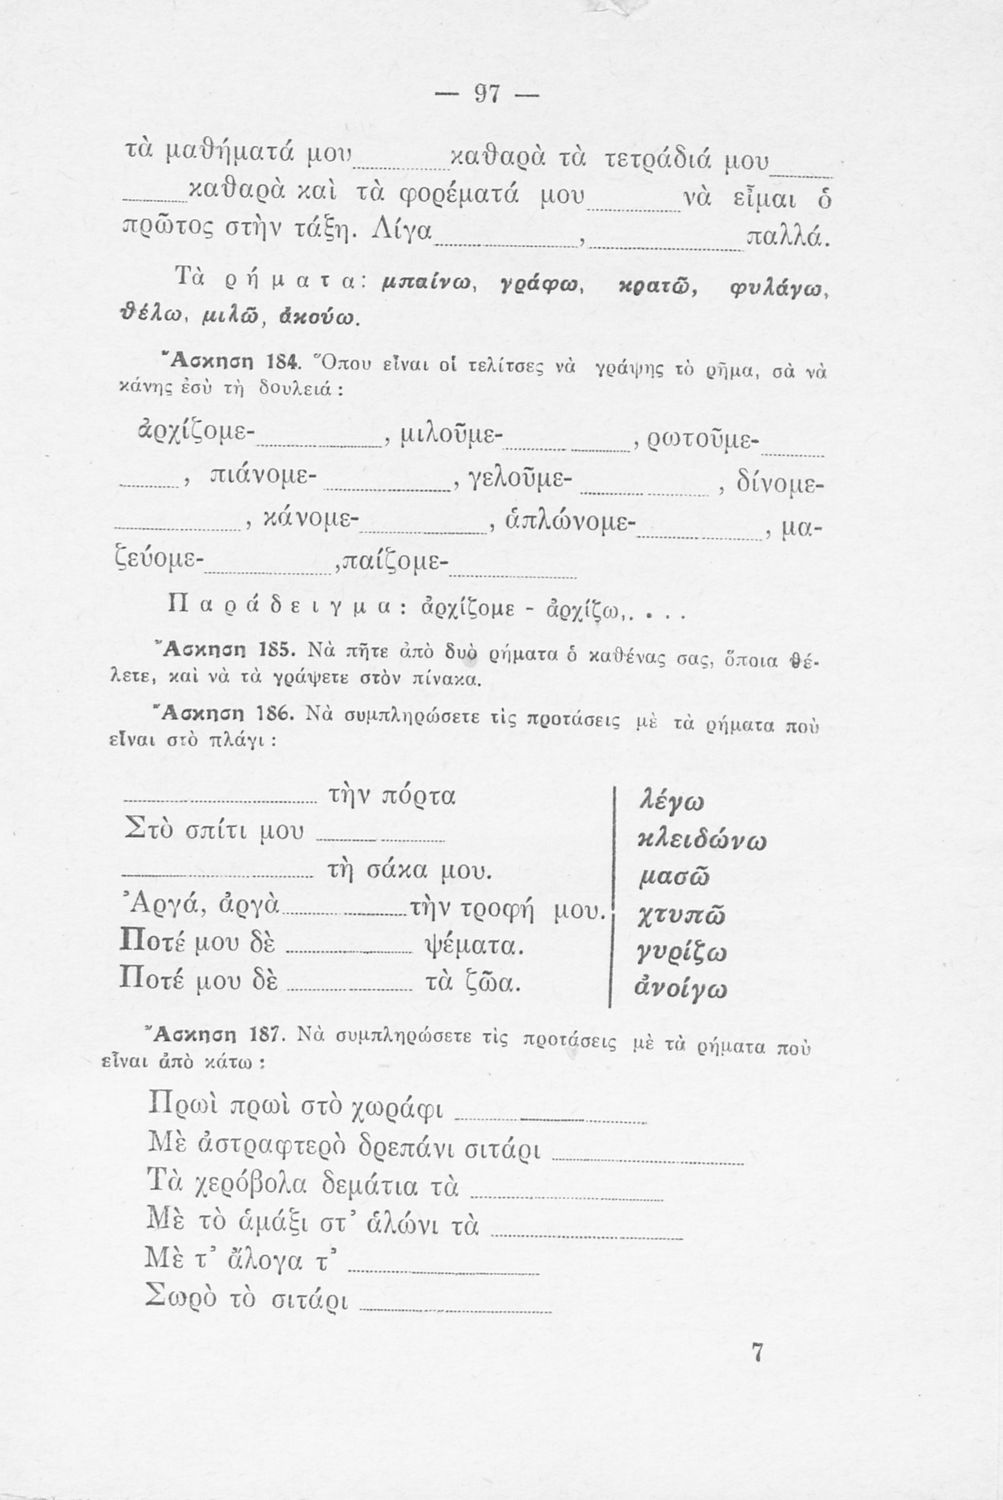 — 97 —
τὰ μαθήματά μου_______καθαρὰ τὰ τετράδιά μου_____
_____καθαρὰ καὶ τὰ φορέματά μου_______νὰ εἶμαι ὁ
πρῶτος στὴν τάξη. Λίγα__________,___________παλλά.
Τὰ ρήματα: μπαίνω, γράφω, κρατῶ, φυλάγω,
θέλω, μιλῶ, ἀκούω.
Ἄσκηση 184. Ὅπου εἶναι οἱ τελίτσες νὰ γράψης τὸ ρῆμα, σὰ νὰ
κάνης ἐσὺ τὴ δουλειά :
ἀρχίζομε-_________, μιλοῦμε-_________, ρωτοῦμε-_____
_____, πιάνομε-_________, γελοῦμε-_________, δίνομε-
_________, κάνομε-_________, ἁπλώνομε-_________, μα-
ζεύομε-_________,παίζομε-_________
Παράδειγμα: ἀρχίζομε - ἀρχίζω,. . . .
Ἄσκηση 185. Νὰ πῆτε ἀπὸ δυὸ ρήματα ὁ καθένας σας, ὅποια θέ-
λετε, καὶ νὰ τὰ γράψετε στὸν πίνακα.
Ἄσκηση 186. Νὰ συμπληρώσετε τὶς προτάσεις μὲ τὰ ρήματα ποὺ
εἶναι στὸ πλάγι :
______________ τὴν πόρτα
Στὸ σπίτι μου _________
______________ τὴ σάκα μου.
Ἀργά, ἀργὰ_________τὴν τροφή μου.
Ποτέ μου δὲ _________ ψέματα.
Ποτέ μου δὲ _________ τὰ ζῶα.
λέγω
κλειδώνω
μασῶ
χτυπῶ
γυρίζω
ἀνοίγω
Ἄσκηση 187. Νὰ συμπληρώσετε τὶς προτάσεις μὲ τὰ ρήματα ποὺ
εἶναι ἀπὸ κάτω :
Πρωὶ πρωὶ στὸ χωράφι ______________
Μὲ ἀστραφτερὸ δρεπάνι σιτάρι ______________
Τὰ χερόβολα δεμάτια τὰ ______________
Μὲ τὸ ἁμάξι στ' ἁλώνι τὰ ______________
Μὲ τ' ἄλογα τ' ______________
Σωρὸ τὸ σιτάρι ______________
7